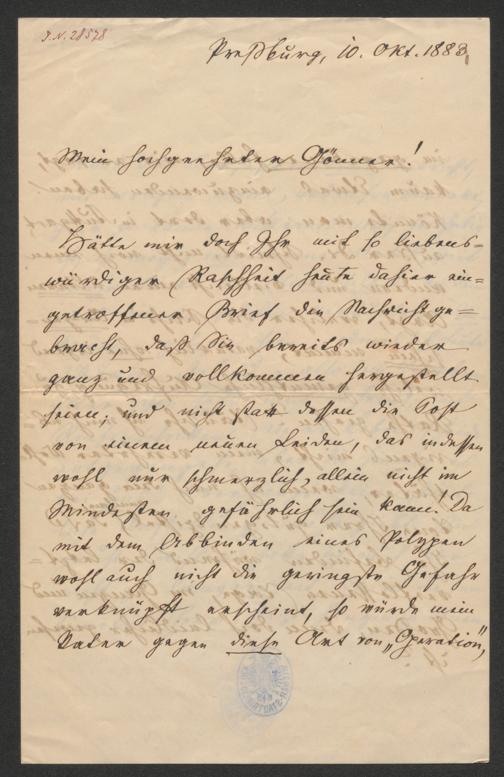 J.N. 28578
Preßburg, 10. Okt. 1883,
Mein hochgeehrter Gönner!
Hätte mir doch Ihr mit so liebens-
würdiger Raschheit heute dahier ein=
getroffener Brief die Nachricht ge=
bracht, daß Sie bereits wieder
ganz und vollkommen hergestellt
seien; und nicht statt dessen die Post
von einem neuen Leiden, das indessen
wohl nur schmerzlich, allein nicht im
Mindesten gefährlich sein kann! Da
mit dem Abbinden eines Polypen
wohl auch nicht die geringste Gefahr
verknüpft erscheint, so würde mein
Vater gegen diese Art von „Operation",